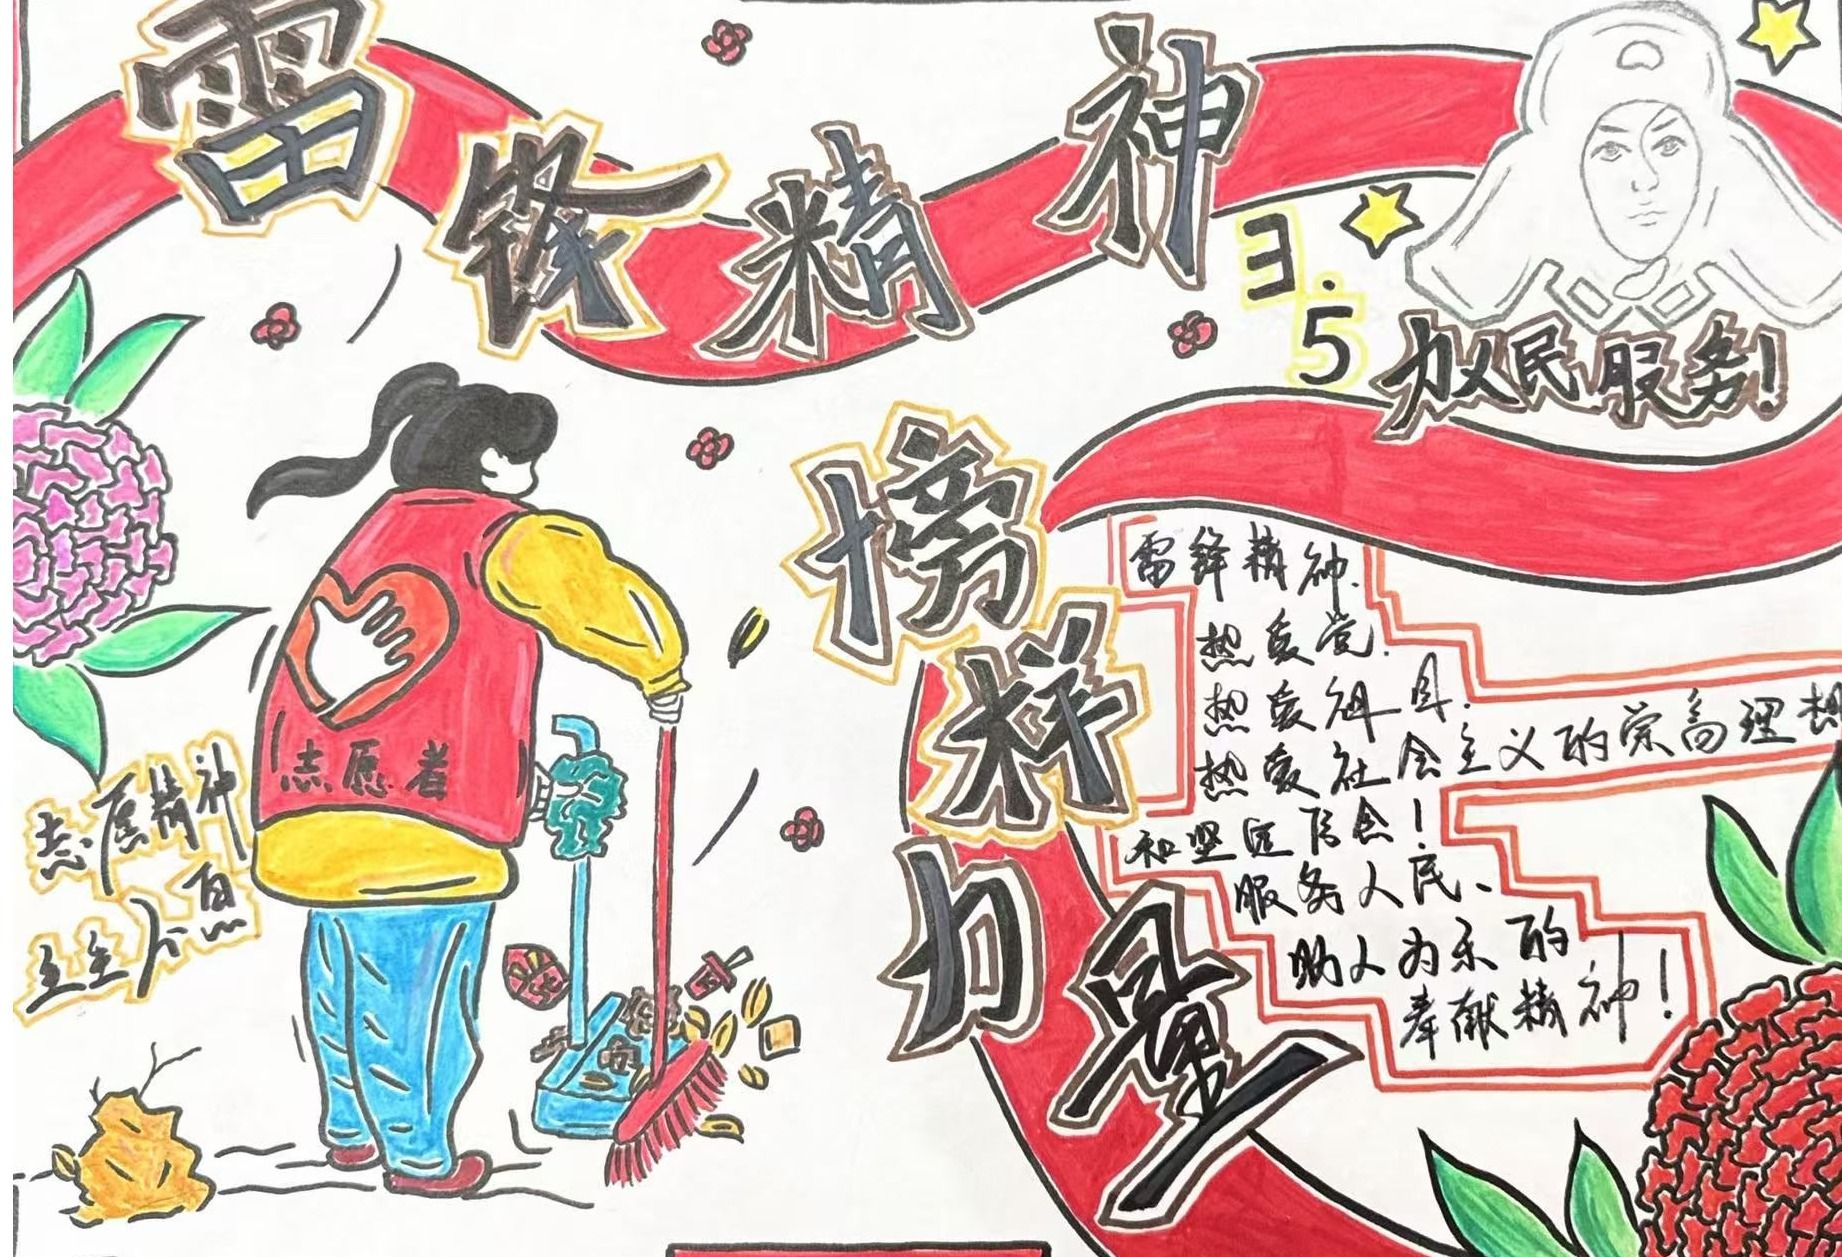 雷锋精神
3.5
为人民服务!
榜样力量
雷锋精神.
热爱党.
热爱祖国.
热爱社会主义的崇高理想
和坚定信念!
服务人民、
助人为乐的
奉献精神!
志愿者
志愿精神
生生不息